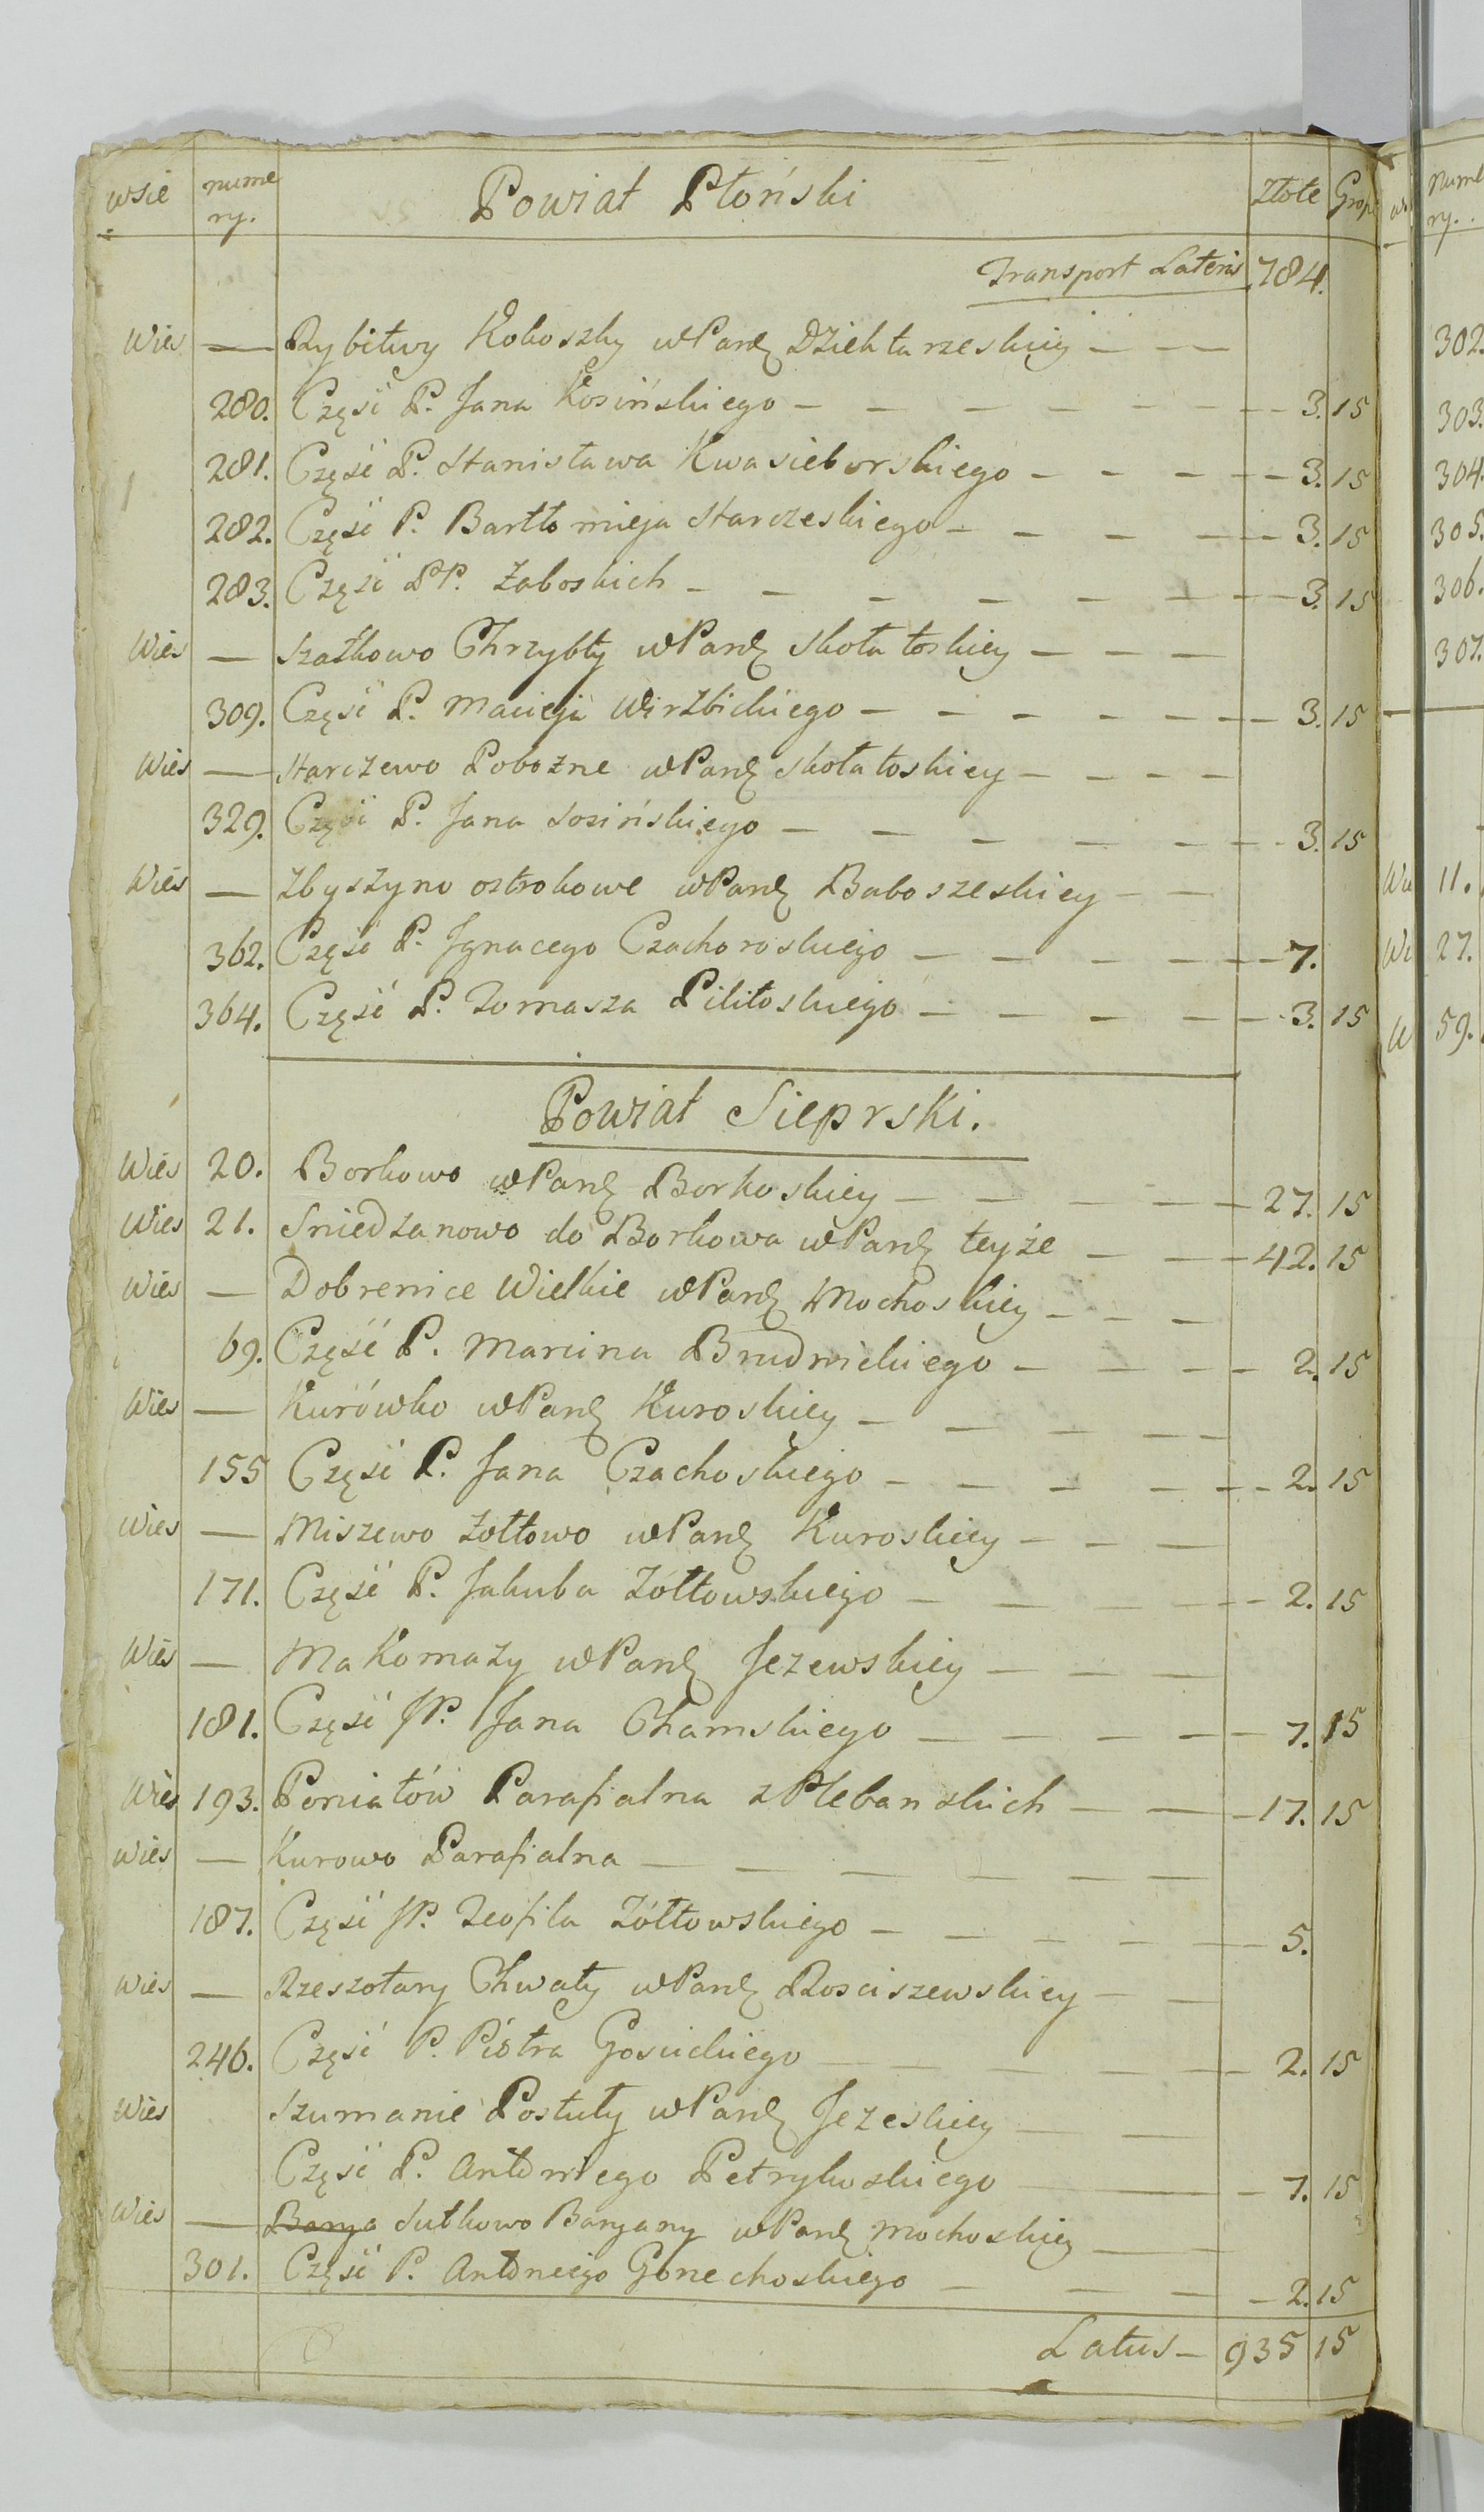 wsie numery. Powiat Płoński Złote Grosz
Transport Lateris 784.
Wies — Rybitwy Kokoszki w Parã Dziektarzeskiey — —
280. Częsć P. Jana Kosińskiego — — — — — — 3. 15
281. Częsć P. Stanisława Kwasieborskiego — — — — 3. 15
282. Częsć P. Bartłomieja Starczeskiego — — — — 3. 15
283. Częsć PP. Żaboskich — — — — — — 3. 15
Wies — Szatkowo Chrzybły w Parã Skołatoskiey — — —
309. Częsć P. Macieja Wirzbickiego — — — — — 3. 15
Wies — Starczewo Pobożne w Parã Skołatoskiey — — — —
329. Częsć P. Jana Sosińskiego — — — — — 3. 15
Wies — Zbyszyno ostrokowe w Parã Baboszeskiey — —
362. Częsć P. Jgnacego Czachoroskiego — — — — 7.
364. Częsć P. Tomasza Pilitoskiego — — — — 3. 15
Powiat Sieprski.
Wies 20. Borkowo w Parã Borkoskiey — — — — 27. 15
Wies 21. Sniedzanowo do Borkowa w Parã teyże — — 42. 15
Wies — Dobrenice Wielkie w Parã Mochoskiey — — —
69. Częsć P. Marcina Brudnickiego — — — — 2. 15
Wies — Kurówko w Parã Kuroskiey — — — — —
155 Częsć P. Jana Czachoskiego — — — — — 2. 15
Wies — Miszewo Żołtowo w Parã Kuroskiey — — —
171. Częsć P. Jakuba Żółtowskiego — — — — 2. 15
Wies — Makomazy w Parã Jezewskiey — — —
181. Częsć JP. Jana Chamskiego — — — — 7. 15
Wies 193. Poniatów Parafialna z Plebanskich — — 17. 15
Wies — Kurowo Parafialna — — — — — —
187. Częsć JP. Teofila Żółtowskiego — — — — — 5.
Wies — Rzeszotary Chwały w Parã Rosciszewskiey — —
246. Częsć P. Piotra Gosickiego — — — — — 2. 15
Wies Szumanie Postuły w Parã Jezeskiey — —
Częsć P. Antoniego Petrykoskiego — — — 7. 15
Wies — Barya Sutkowo Baryany w Parã Mochoskiey — —
301. Częsć P. Antoniego Gonechoskiego — — — — 2. 15
Latus — 935 15
Nume
ry.
302.
303.
304.
305.
306.
307.
11.
27.
59.